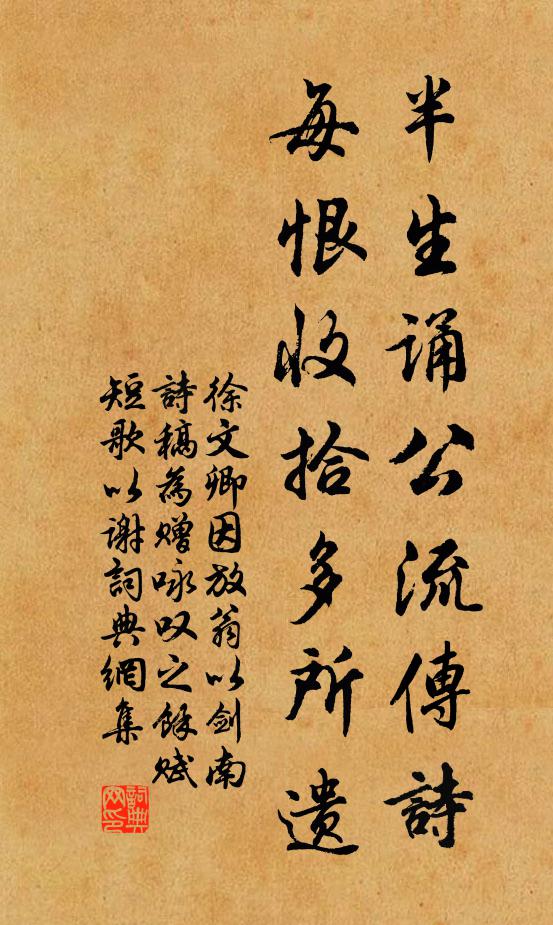 半生诵公流傳詩
每恨收拾多所遗
徐文卿因放翁以剑南
詩稿為赠咏叹之餘赋
短歌以谢詞典網集
詞典網印